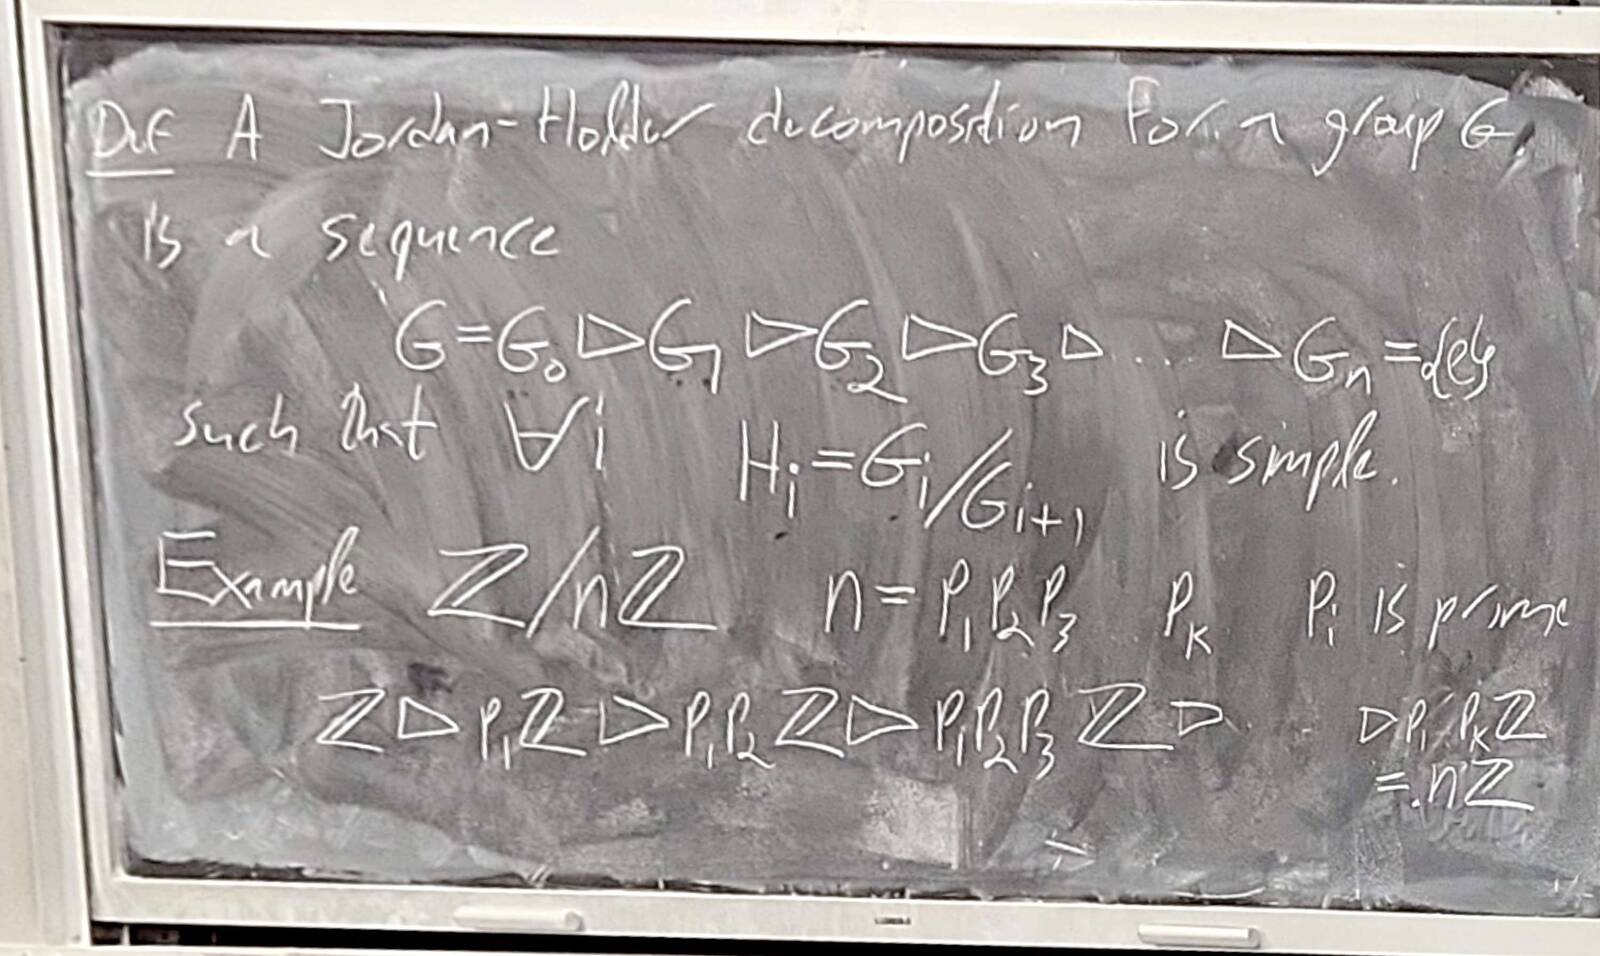 Def A Jordan-Holder decomposition for a group G,
is a sequence
G=G₀▷G₁▷G₂▷G₃▷... ▷Gₙ={e}
such that ∀i Hᵢ=Gᵢ/Gᵢ₊₁ is simple.
Example ℤ/nℤ n=P₁P₂P₃ Pₖ Pᵢ is prime
ℤ▷P₁ℤ▷P₁P₂ℤ▷P₁P₂P₃ℤ▷ ▷P₁..Pₖℤ
=nℤ